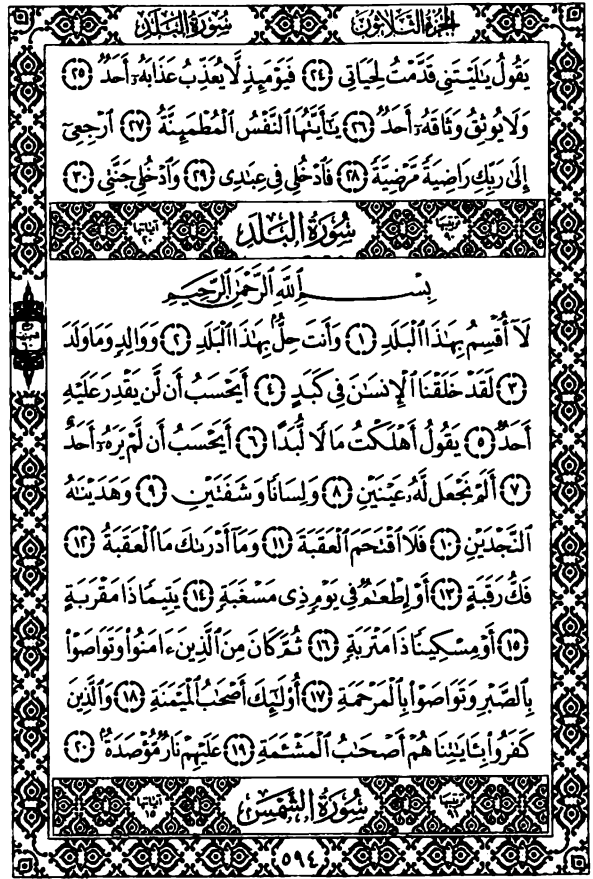 الجزء الثلاثون سورة البلد
يَقُولُ يَٰلَيْتَنِى قَدَّمْتُ لِحَيَاتِى ٢٤ فَيَوْمَئِذٍ لَّا يُعَذِّبُ عَذَابَهُۥٓ أَحَدٌ ٢٥
وَلَا يُوثِقُ وَثَاقَهُۥٓ أَحَدٌ ٢٦ يَٰٓأَيَّتُهَا ٱلنَّفْسُ ٱلْمُطْمَئِنَّةُ ٢٧ ٱرْجِعِىٓ
إِلَىٰ رَبِّكِ رَاضِيَةً مَّرْضِيَّةً ٢٨ فَٱدْخُلِى فِى عِبَٰدِى ٢٩ وَٱدْخُلِى جَنَّتِى ٣٠
ترتيبها ٩٠ سُورَةُ البَلَدِ آياتها ٢٠
بِسْمِ ٱللَّهِ ٱلرَّحْمَٰنِ ٱلرَّحِيمِ
لَآ أُقْسِمُ بِهَٰذَا ٱلْبَلَدِ ١ وَأَنتَ حِلٌّۢ بِهَٰذَا ٱلْبَلَدِ ٢ وَوَالِدٍ وَمَا وَلَدَ
٣ لَقَدْ خَلَقْنَا ٱلْإِنسَٰنَ فِى كَبَدٍ ٤ أَيَحْسَبُ أَن لَّن يَقْدِرَ عَلَيْهِ
أَحَدٌ ٥ يَقُولُ أَهْلَكْتُ مَالًا لُّبَدًا ٦ أَيَحْسَبُ أَن لَّمْ يَرَهُۥٓ أَحَدٌ
٧ أَلَمْ نَجْعَل لَّهُۥ عَيْنَيْنِ ٨ وَلِسَانًا وَشَفَتَيْنِ ٩ وَهَدَيْنَٰهُ
ٱلنَّجْدَيْنِ ١٠ فَلَا ٱقْتَحَمَ ٱلْعَقَبَةَ ١١ وَمَآ أَدْرَىٰكَ مَا ٱلْعَقَبَةُ ١٢
فَكُّ رَقَبَةٍ ١٣ أَوْ إِطْعَٰمٌ فِى يَوْمٍ ذِى مَسْغَبَةٍ ١٤ يَتِيمًا ذَا مَقْرَبَةٍ
١٥ أَوْ مِسْكِينًا ذَا مَتْرَبَةٍ ١٦ ثُمَّ كَانَ مِنَ ٱلَّذِينَ ءَامَنُوا۟ وَتَوَاصَوْا۟
بِٱلصَّبْرِ وَتَوَاصَوْا۟ بِٱلْمَرْحَمَةِ ١٧ أُو۟لَٰٓئِكَ أَصْحَٰبُ ٱلْمَيْمَنَةِ ١٨ وَٱلَّذِينَ
كَفَرُوا۟ بِـَٔايَٰتِنَا هُمْ أَصْحَٰبُ ٱلْمَشْـَٔمَةِ ١٩ عَلَيْهِمْ نَارٌ مُّؤْصَدَةٌۢ ٢٠
ترتيبها ٩١ سُورَةُ الشَّمْسِ آياتها ١٥
٥٩٤